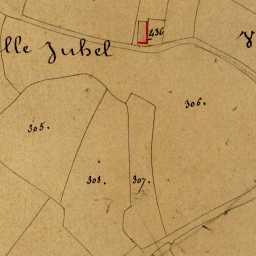 436
lle Jubel
306.
305.
308. 307.